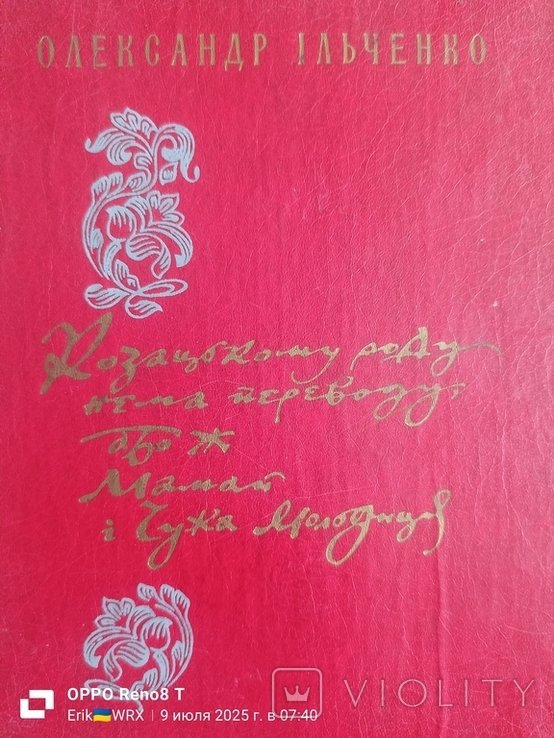 ОЛЕКСАНДР ІЛЬЧЕНКО
Козацькому роду
нема переводу,
або ж
Мамай
і Чужа Молодиця
OPPO Reno8 T
Erik🇺🇦WRX | 9 июля 2025 г. в 07:40
VIOLITY